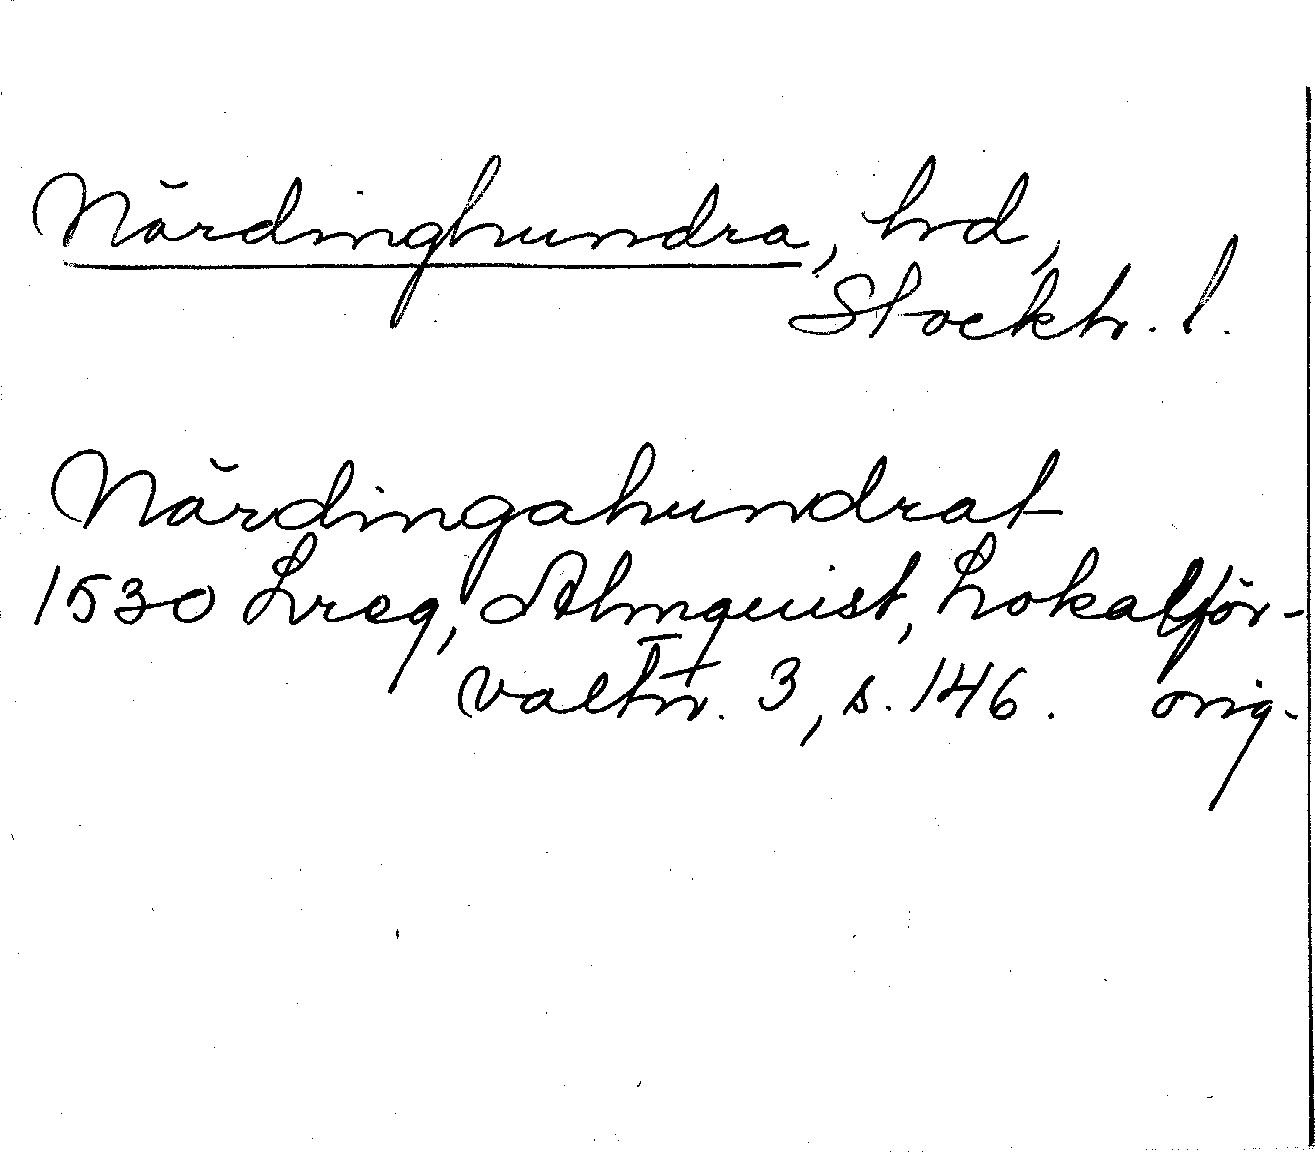 Närdinghundra, hrd,
Stockh. l.
Närdingahundrat
1530 Lreg, Almquist, Lokalför-
valtn. 3, s. 146. orig.